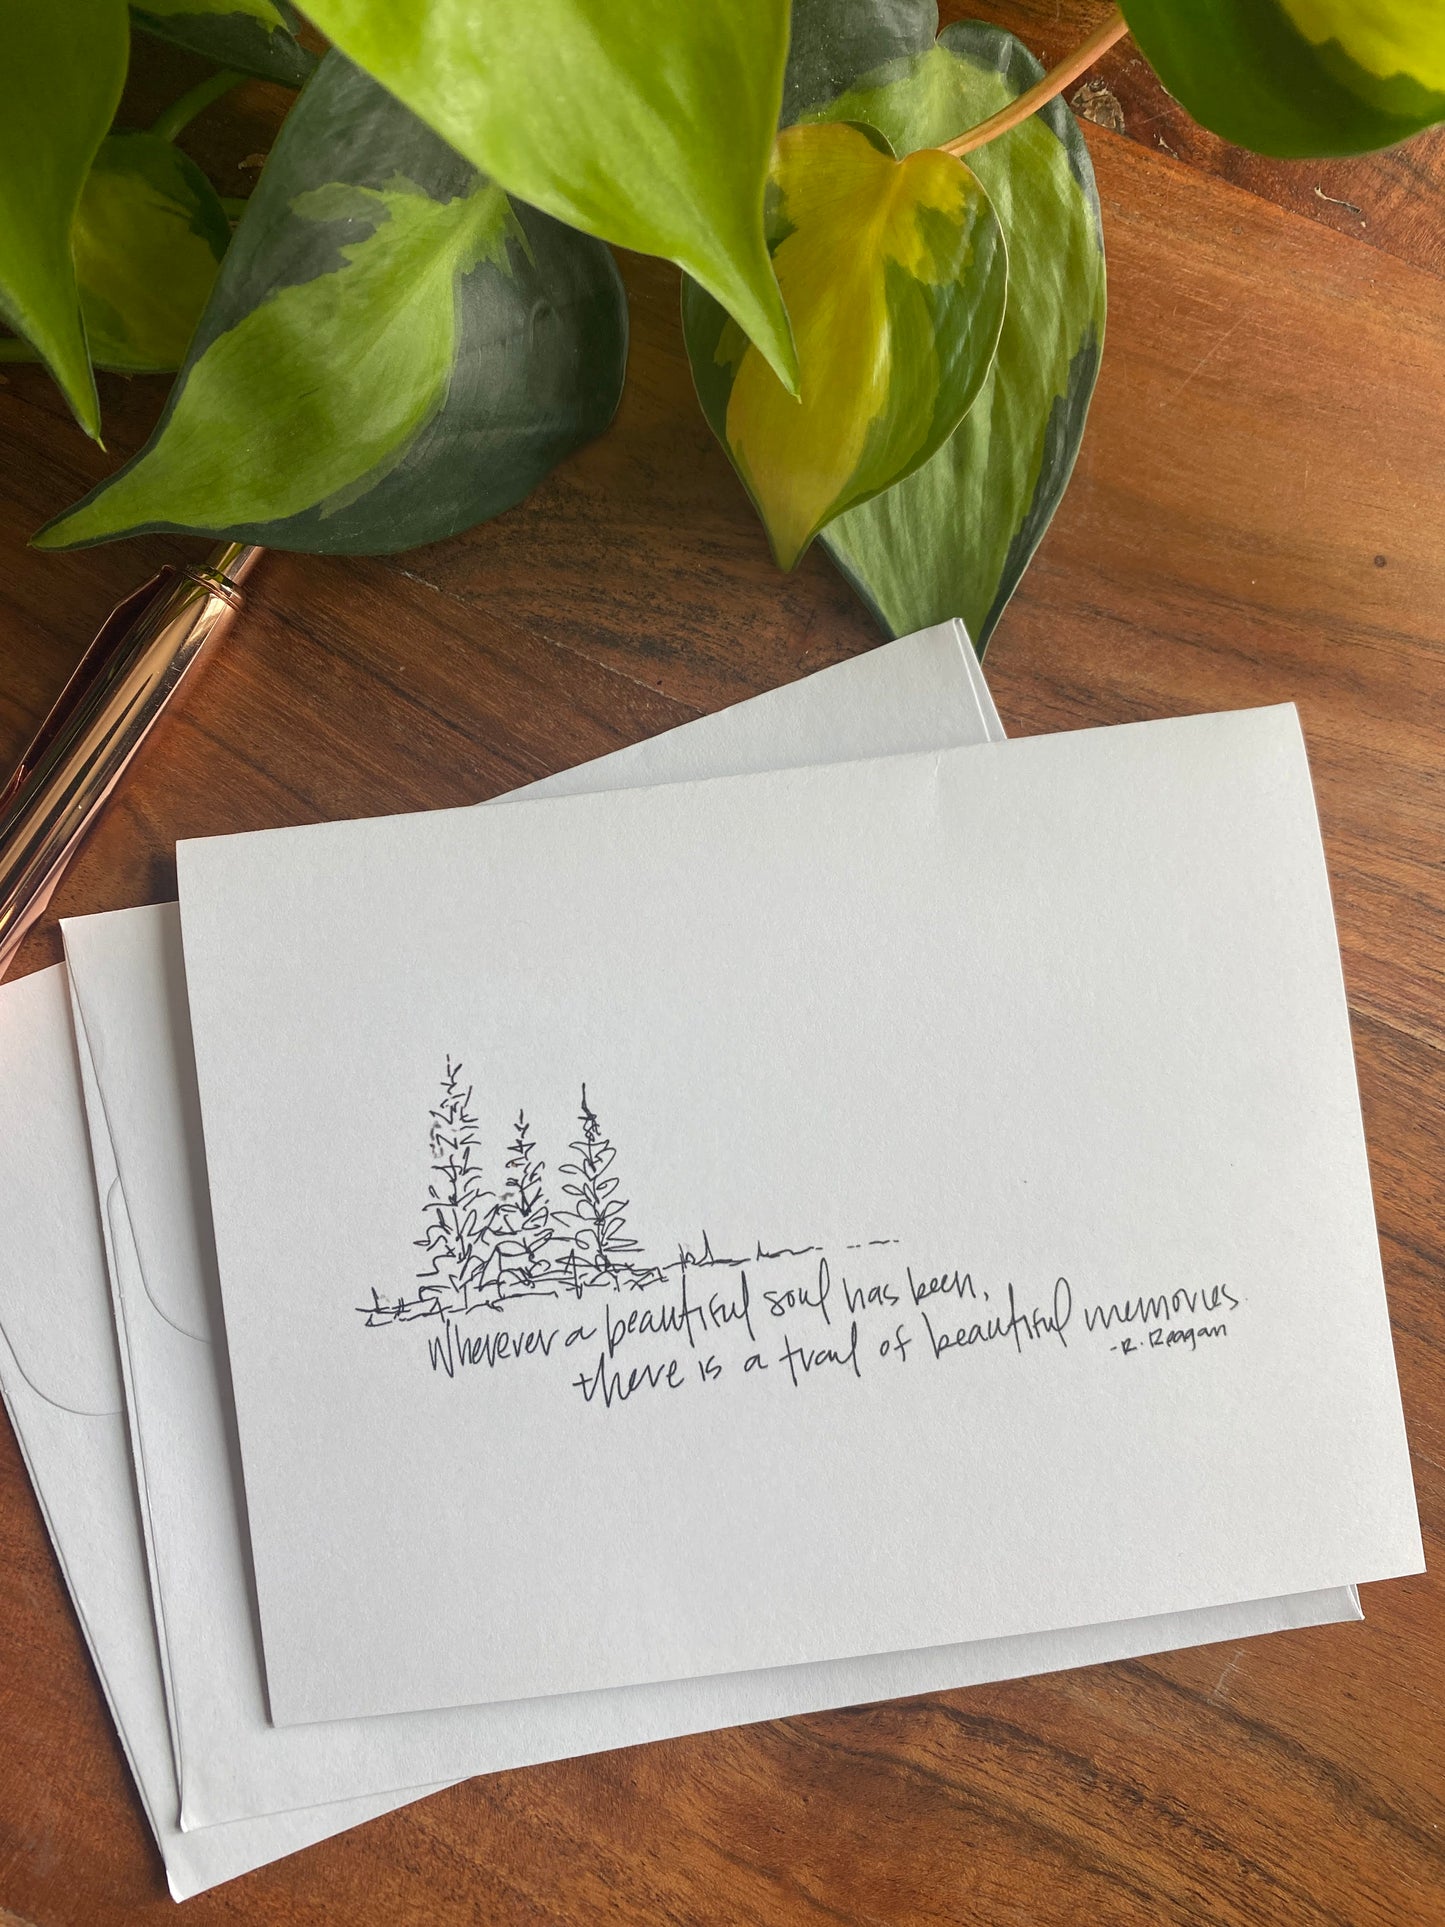 Wherever a beautiful soul has been,
there is a trail of beautiful memories.
-R. Reagan